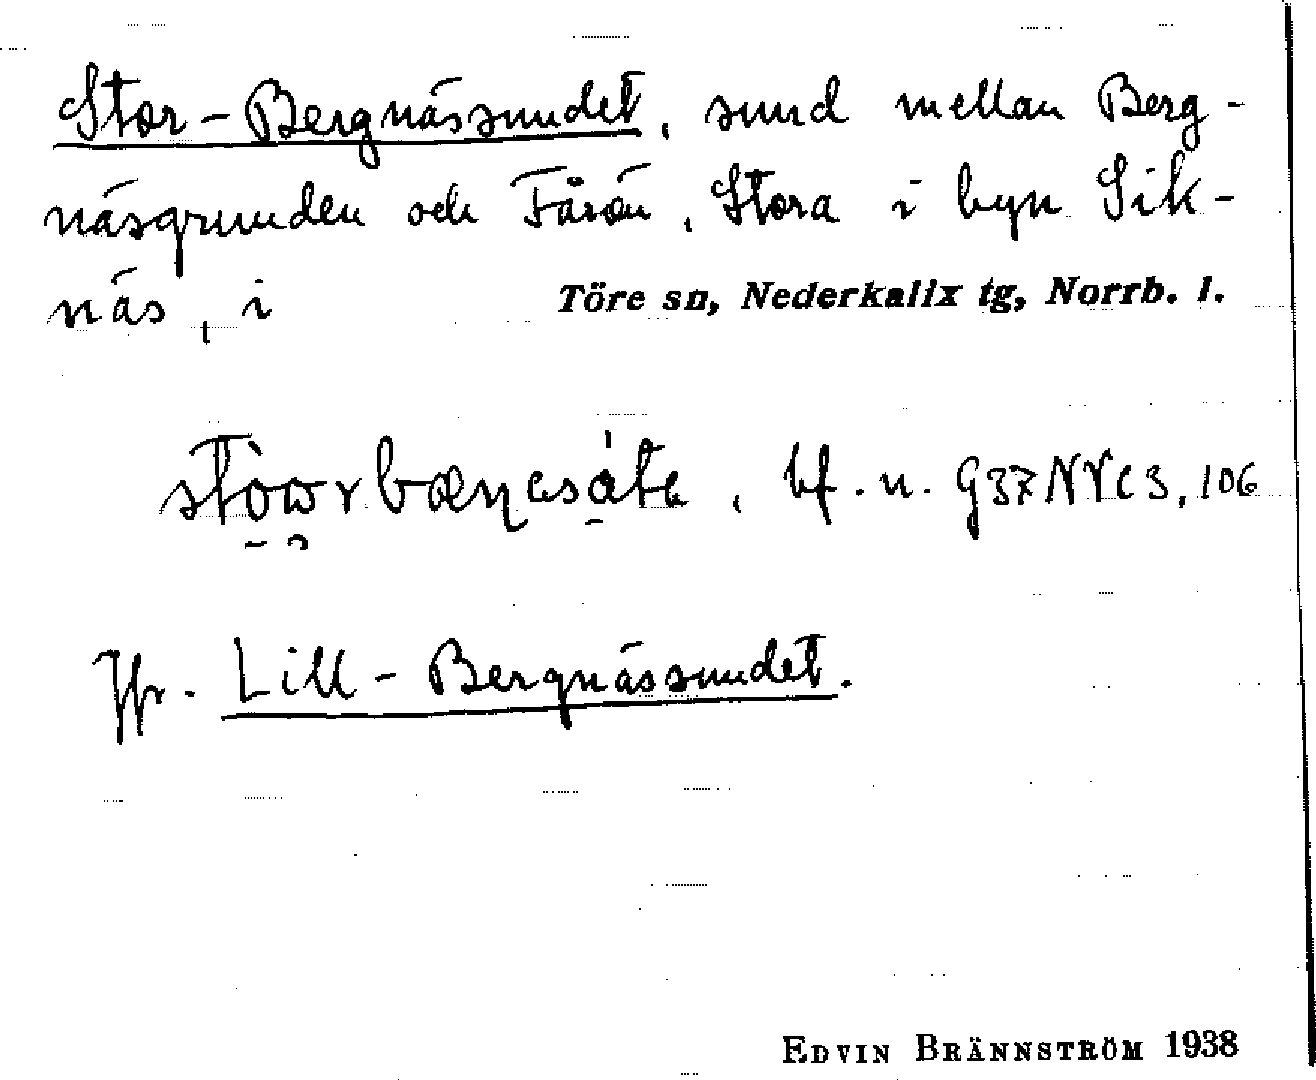 Stor-Bergnässundet, sund mellan Berg-
näsgrunden och Fårön, Stora i byn Sik-
näs, i Töre sn, Nederkalix tg, Norrb. l.
bf. n. G37NYC3, 106
Jfr. Lill-Bergnässundet.
EDVIN BRÄNNSTRÖM 1938